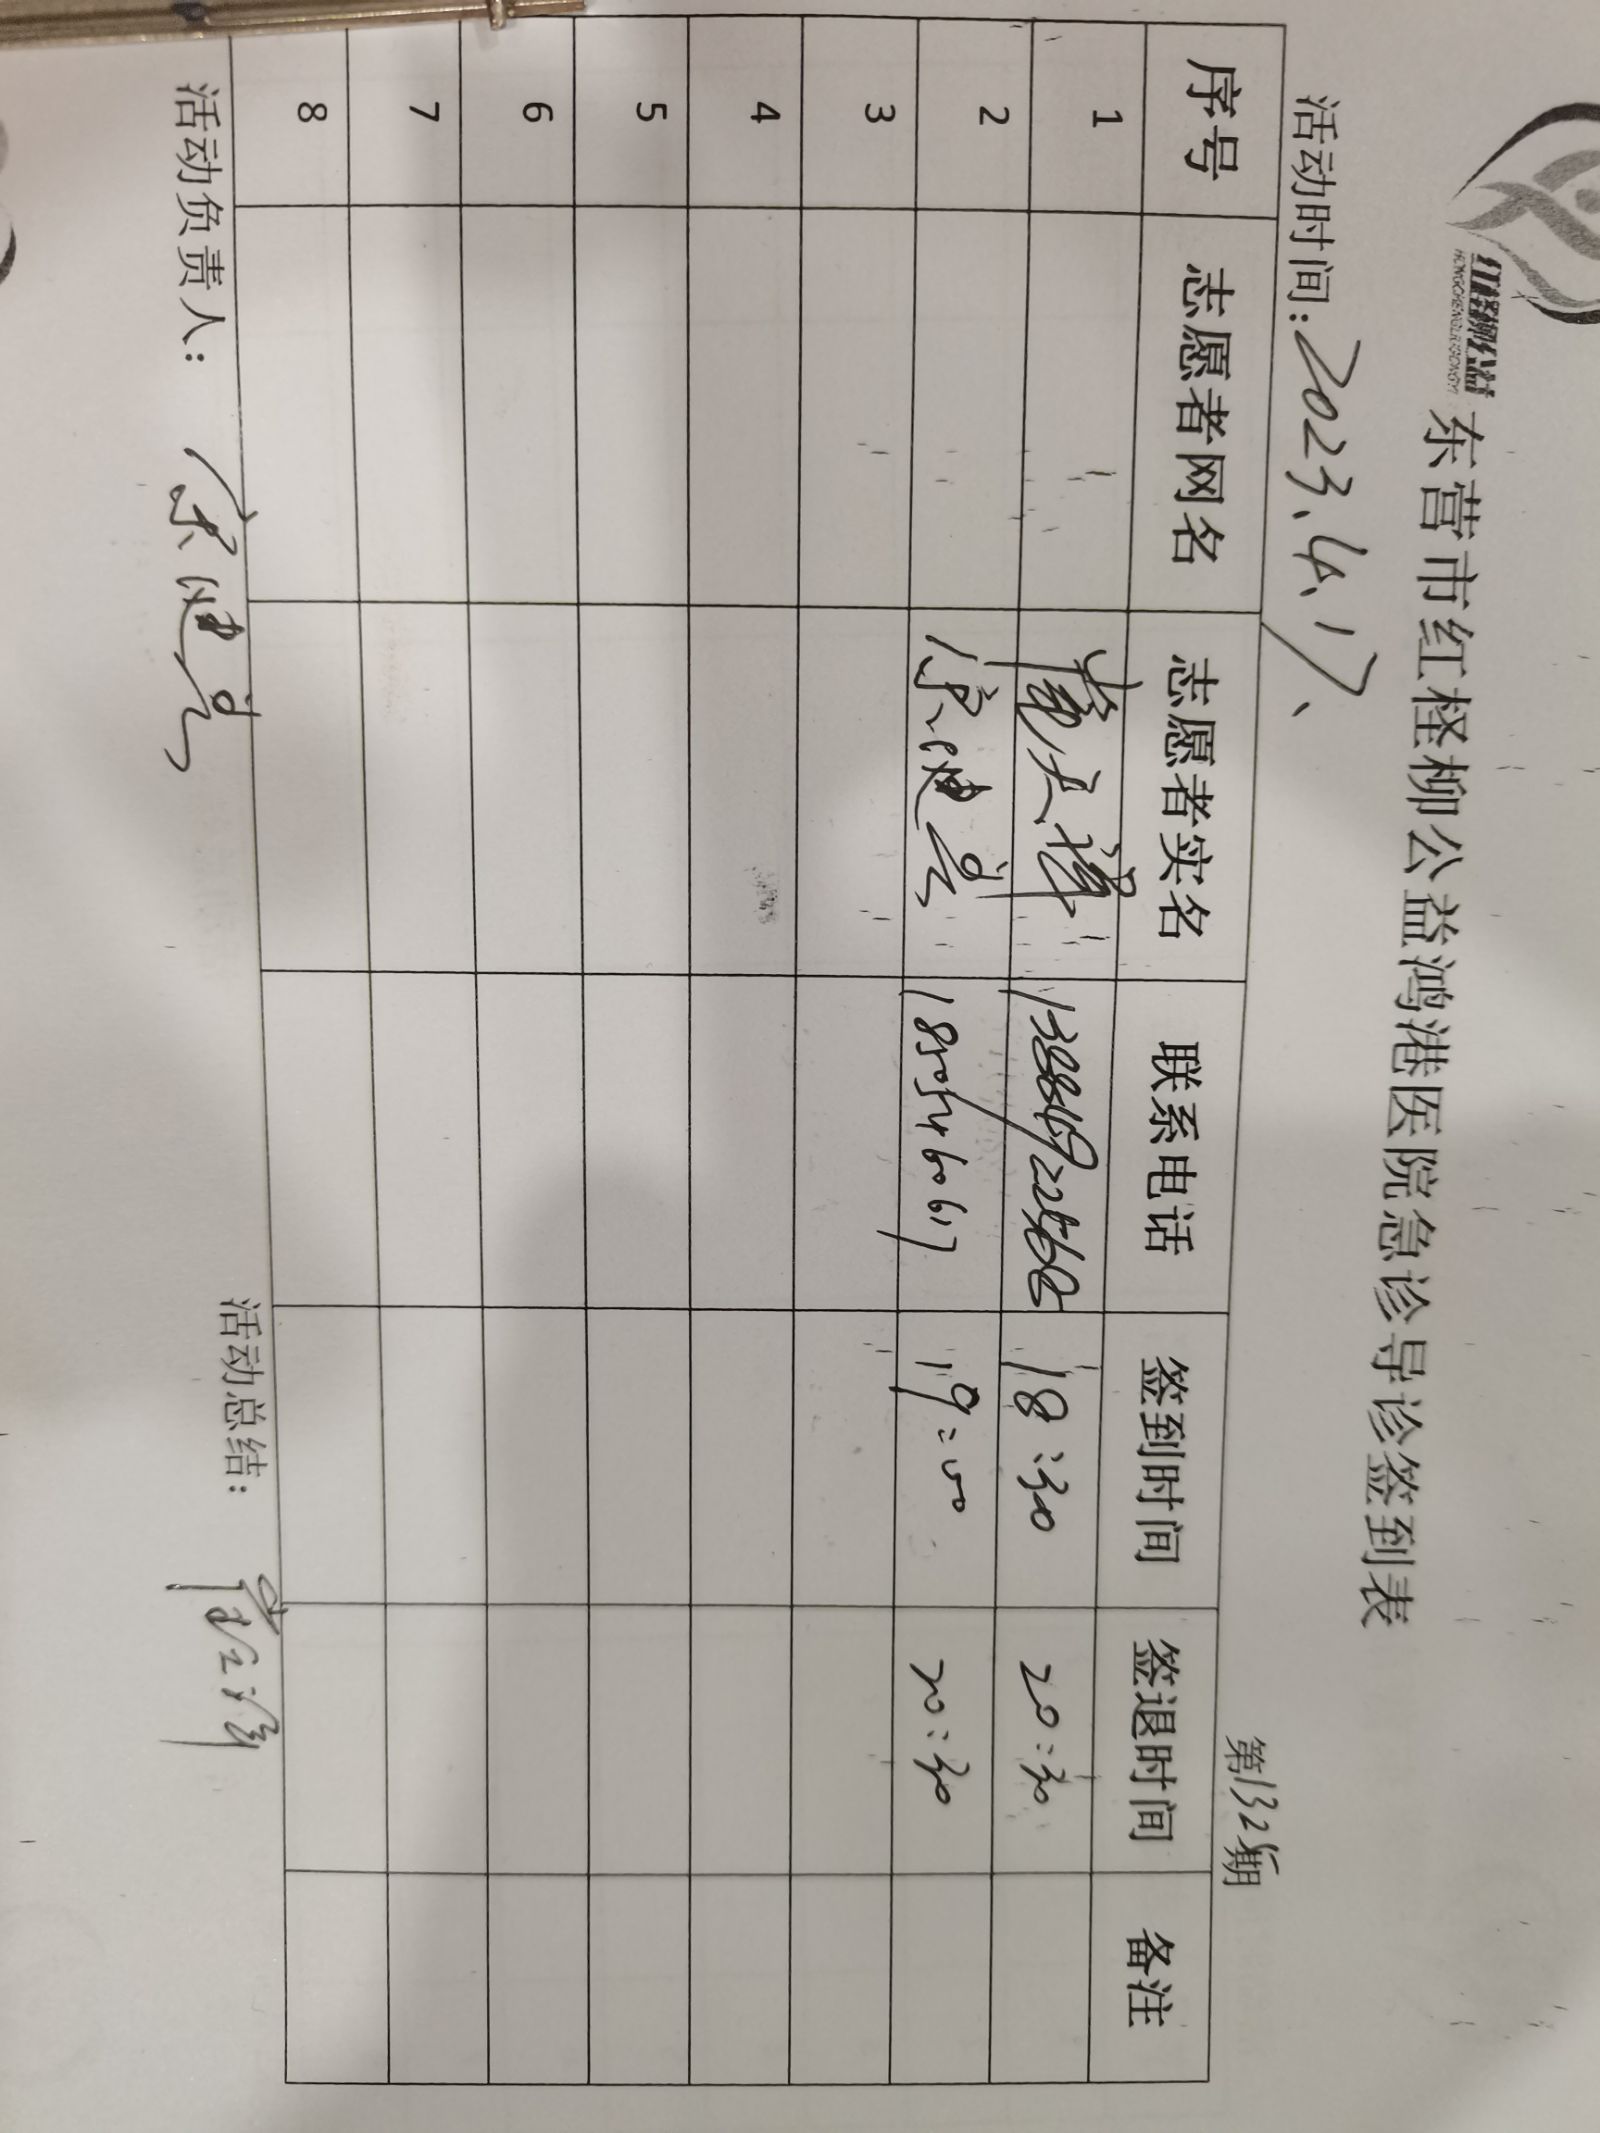 红柽柳公益
HONGCHENGLIUGONGYI
东营市红柽柳公益鸿港医院急诊导诊签到表
活动时间:2023、4、17、
第132期
序号 志愿者网名 志愿者实名 联系电话 签到时间 签退时间 备注
1 18:30 20:30
2 徐建景 18505460617 19:00 20:30
3
4
5
6
7
8
活动负责人: 徐建景 活动总结: